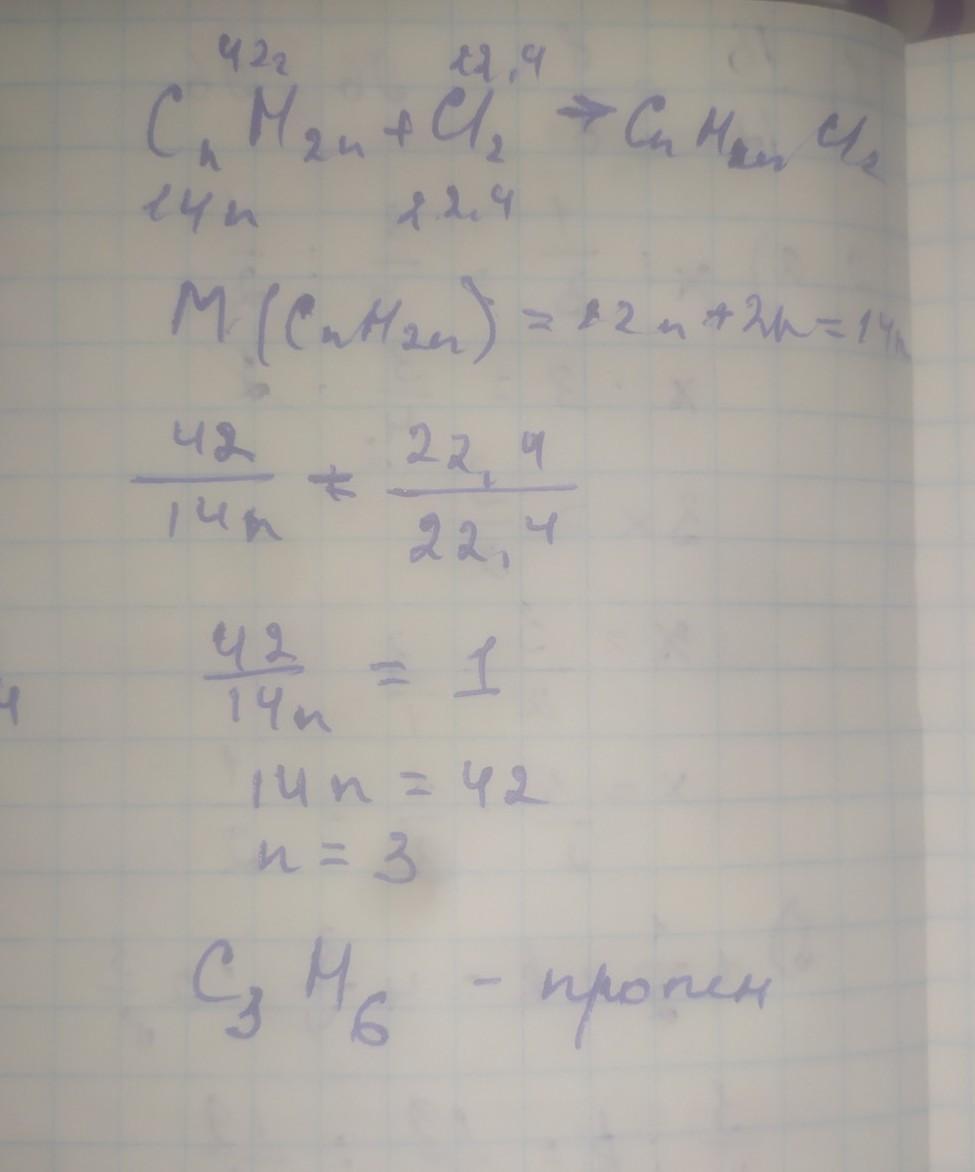 42г 22,4
CnH2n + Cl2 → CnH2nCl2
14n 22.4
M(CnH2n) = 12n + 2n = 14n
42 22,4
14n = 22,4
42
14n = 1
4
14n = 42
n = 3
C3H6 - пропен